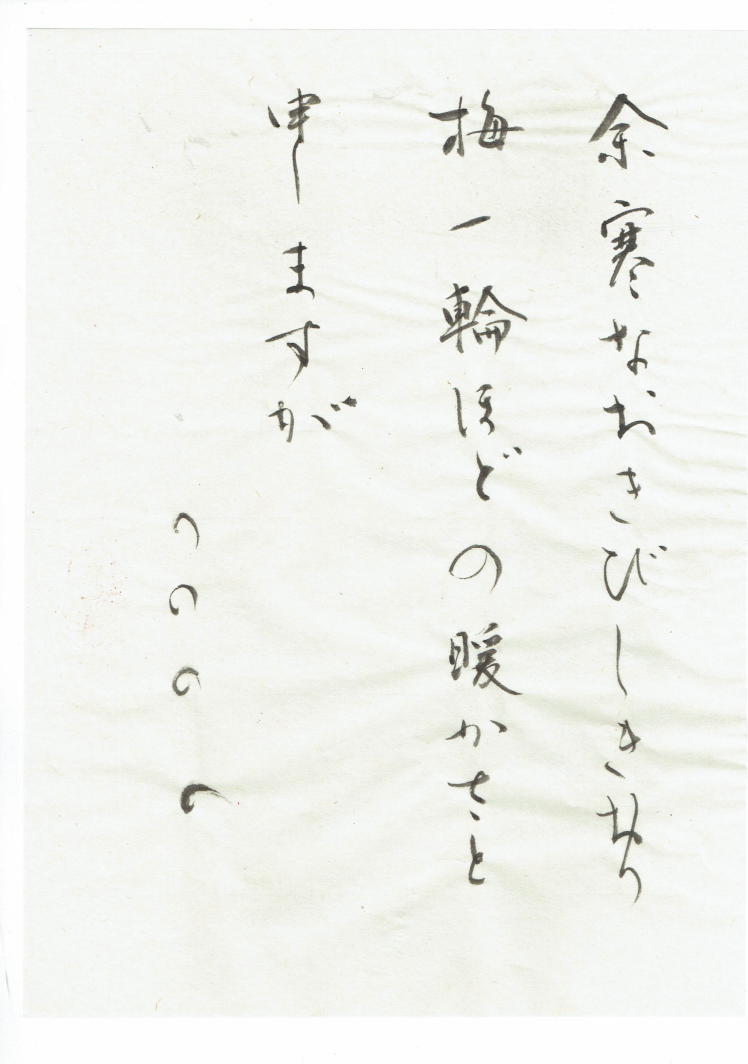 余寒なおきびしきおり
梅一輪ほどの暖かさと
申しますが